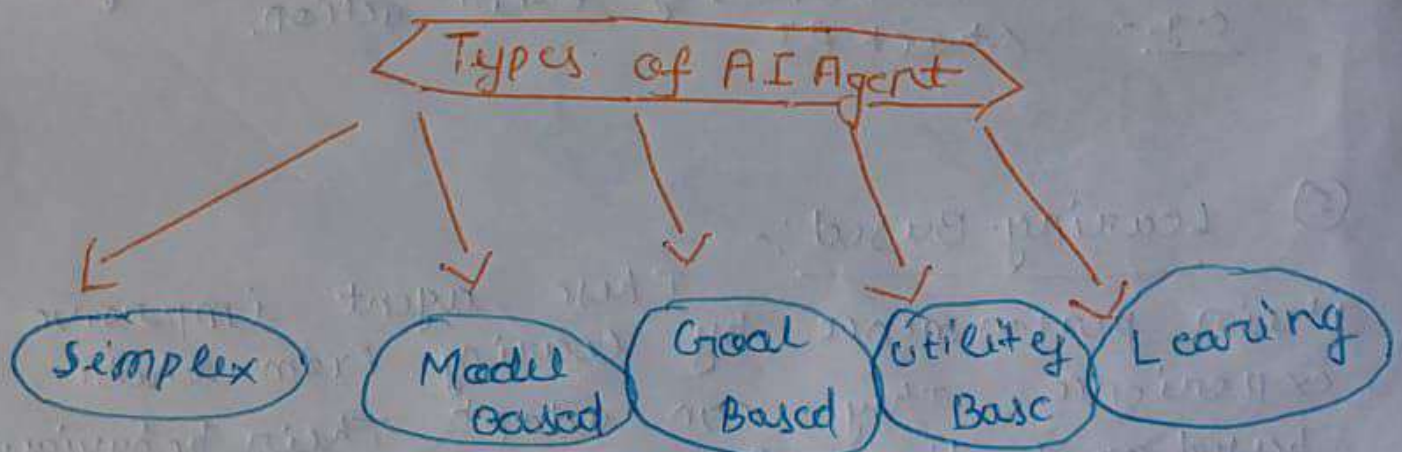 Types of AI Agent
Simplex
Model
Based
Goal
Based
Utility
Base
Learing